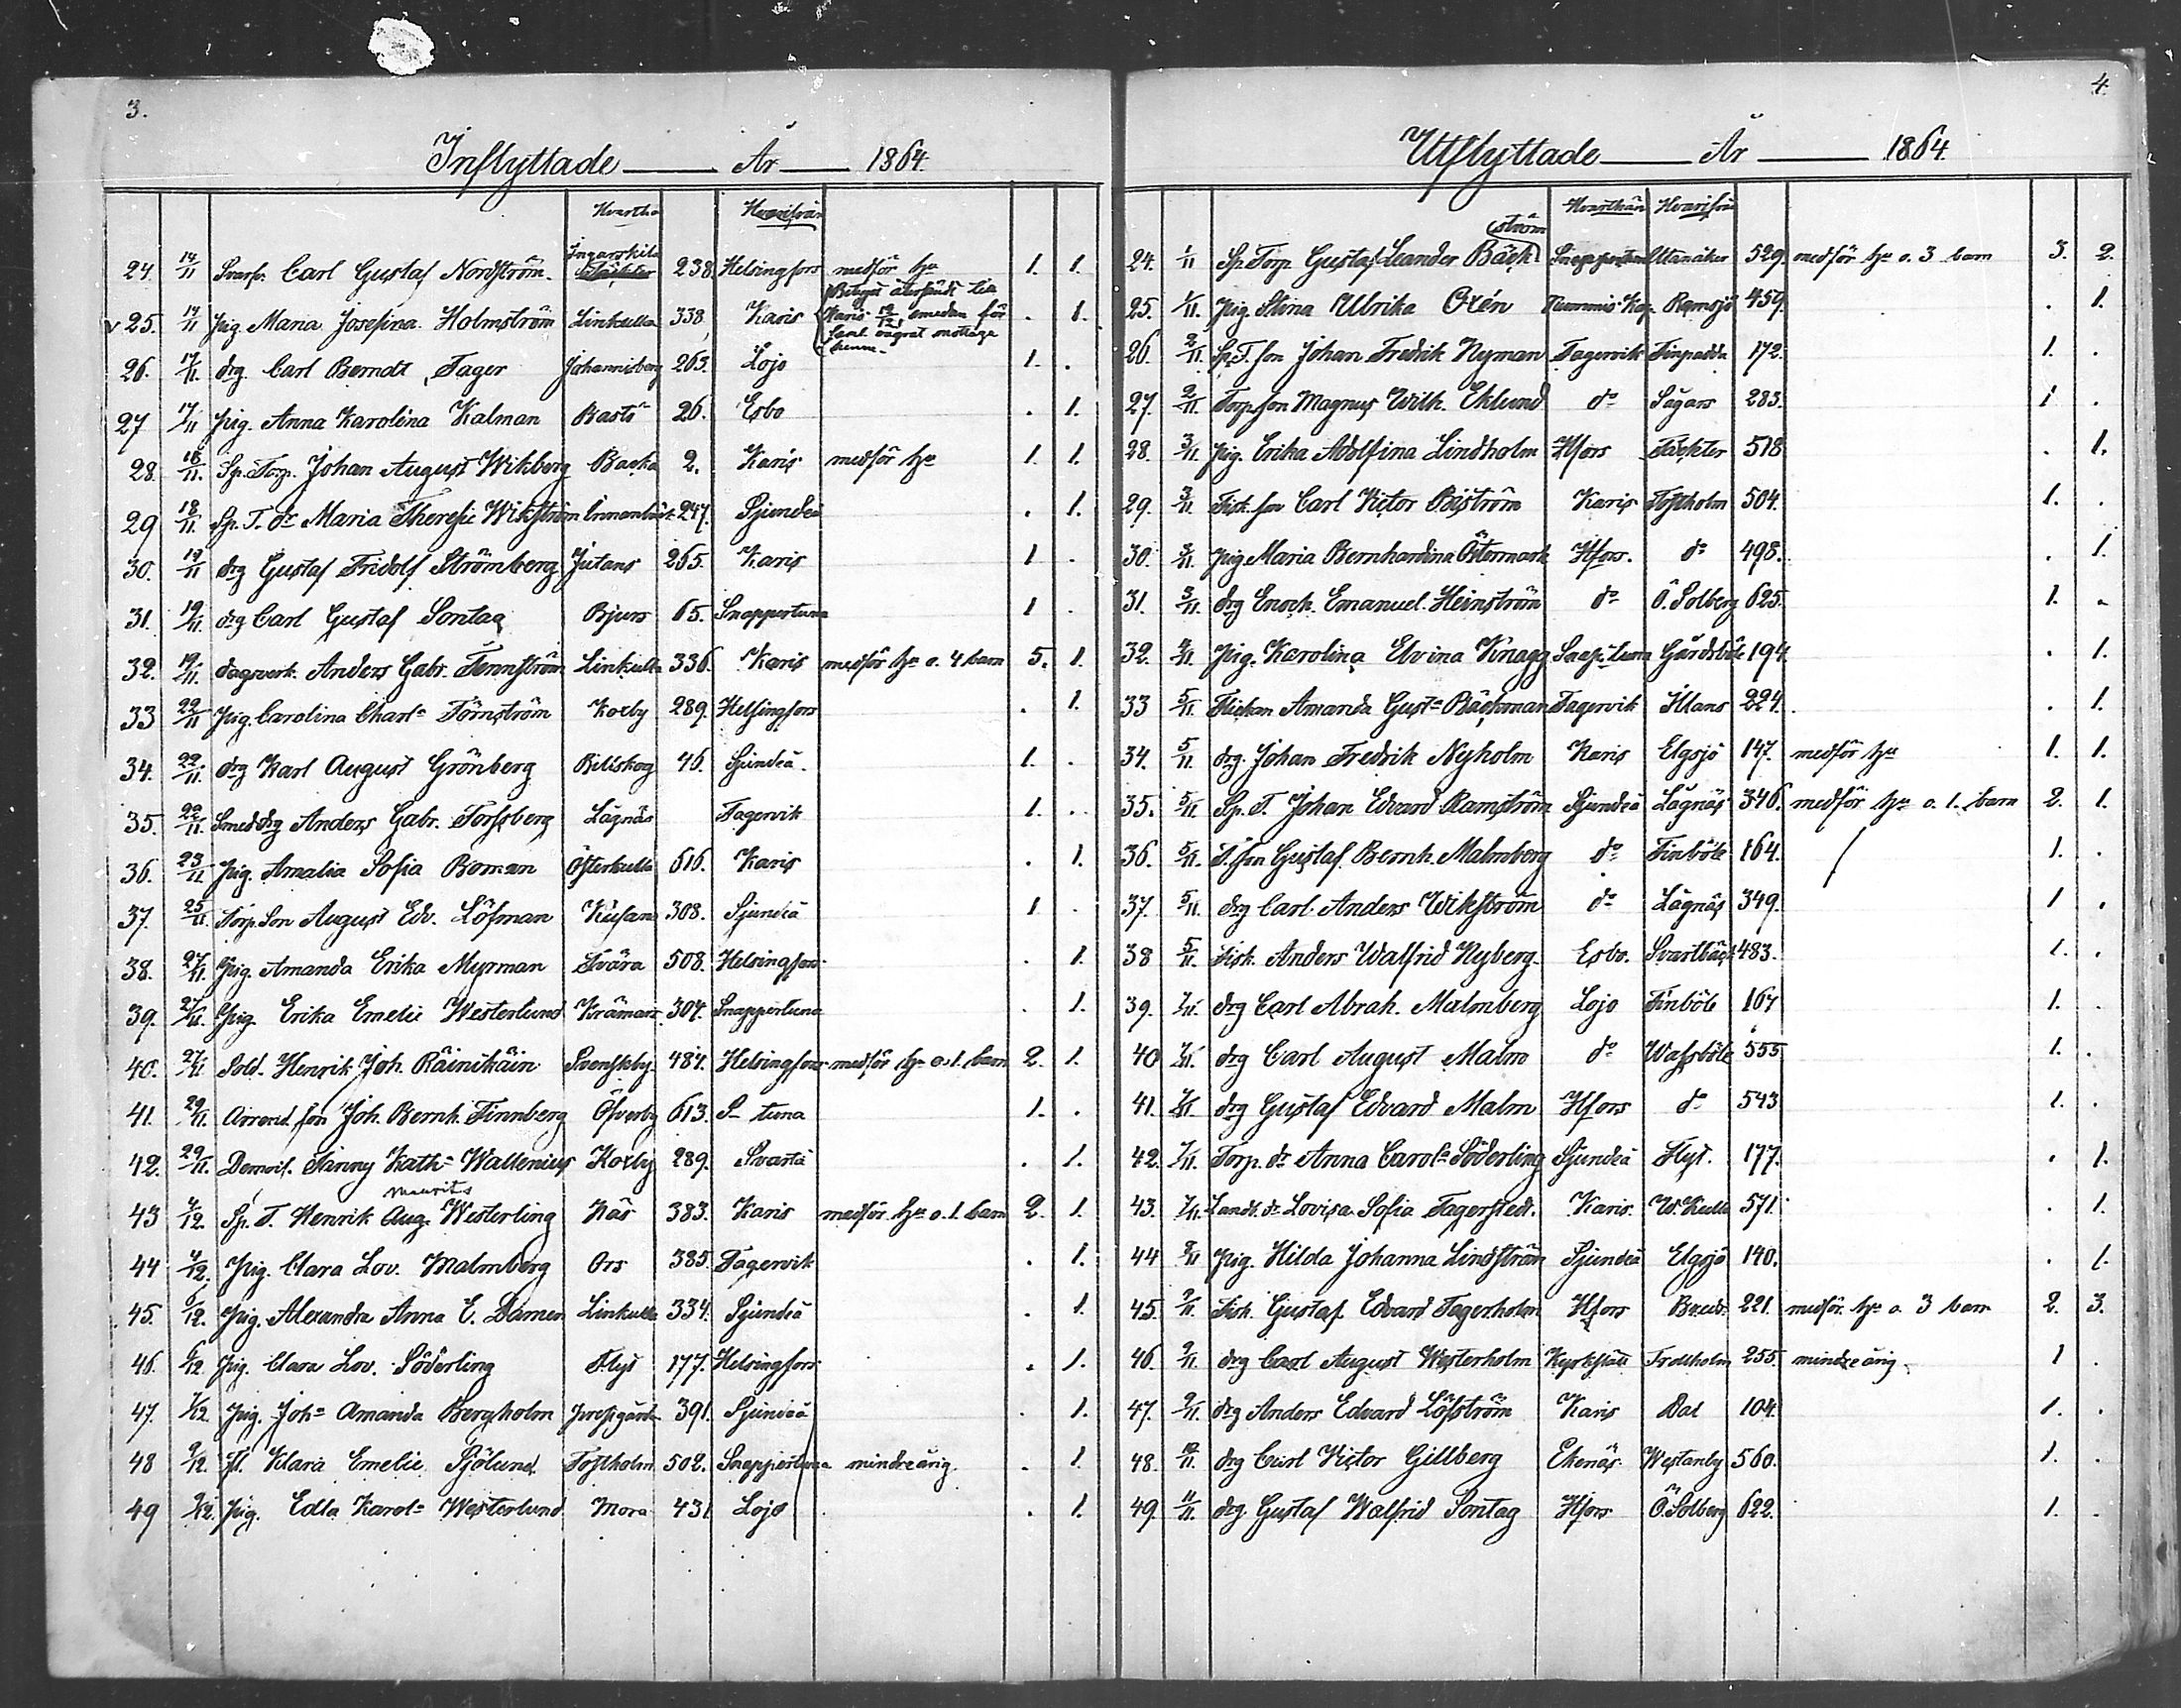 3.
Inflyttade År 1864.
Hvarifrån
24. 14/11 Carl Gustaf Nordström. Ingarskila 238. Helsingfors medför h:u 1. 1.
v 25. 14/11 Pig. Maria Josefina Holmström Linkulla 338. Karis Betyget återsändt till Karis emedan för vägrat mottaga henne. . 1.
26. 17/11. drg. Carl Berndt Fager Johannisberg 263. Lojo 1. .
27 17/11 Pig. Anna Karolina Kalman Bastö 26. Esbo . 1.
28. 18/11. Sp. Torp. Johan August Wikberg Backa 2. Karis medför h:u 1. 1.
29 18/11. Sp. T. dr Maria Theresie Wikström 247. Sjundeå . 1.
30. 19/11 drg Gustaf Fridolf Strömberg Jutans 265. Karis 1 .
31. 19/11. drg Carl Gustaf Sontag Bjurs 65. Snappertuna 1 .
32. 19/11. dagsverk. Anders Gabr. Tennström Linkulla 336. Karis medför h:u o. 4 barn 5. 1.
33 22/11 Pig. Carolina Charl:a Törnström Koxby 289. Helsingfors . 1.
34. 22/11. drg Karl August Grönberg Billskog 46. Sjundeå. 1. .
35. 22/11. Smeddrg Anders Gabr. Forssberg Lågnäs Fagervik 1. .
36. 23/11 Pig. Amalia Sofia Boman Österkulla 616. Karis . 1.
37. 25/11. Torp. Son August Edv. Löfman Kusans 308. Sjundeå 1 .
38. 27/11. Pig. Amanda Erika Myrman Svära 508. Helsingfors . 1.
39. 27/11. Pig. Erika Emelie Westerlund Krämars 307. Snappertuna . 1.
40. 27/11 Sold. Henrik Joh. Räinikäin Svenskby 484. Helsingfors medför h:u o. 1. barn 2. 1.
41. 29/11 Arrend. son Joh. Bernh. Finnberg Öfverby 613. S-tuna 1. .
42. 29/11. Demois. Fanny Kath:a Wallenius Koxby 289. Svartå . 1.
Maurits
43 4/12. Sp. T. Henrik Aug. Westerling Kås 383. Karis medför h:u o. 1. barn 2. 1.
44 4/12. Pig. Clara Lov. Malmberg Ors 385. Fagervik . 1.
45. 6/12. Pig. Alexandra Anna E. Damen Linkulla 334. Sjundeå . 1.
46. 6/12 Pig. Clara Lov. Söderling Flyt 177. Helsingfors . 1.
47. 7/12 Pig. Joh:a Amanda Bergholm 391. Sjundeå . 1.
48 9/12. Fl. Klara Emelie Sjölund Toftholm 502. Snappertuna mindreårig. . 1.
49 9/12. Pig. Edla Karol:a Westerlund Mora 431 Lojo . 1.
4.
Utflyttade År 1864.
Hvarthän Hvarifrån
ström
24. 1/11 Sp. Torp Gustaf Leander Bäck Snappertuna Utanåker 529. medför h:u o. 3 barn 3. 2.
25. 1/11. Pig Stina Ulrika Oxén Ramsjö 459. . 1.
26. 2/11. Sp. T. son Johan Fredrik Nyman Fagervik Finpadda 172. 1. .
27. 2/11. Torp. son Magnus Wilh. Eklund d:o Sågars 283. 1 .
28. 3/11. Pig. Erika Adolfina Lindholm Hfors Täckter 518 . 1.
29. 3/11 Fisk. son Carl Victor Biström Karis Toftholm 504. 1. .
30. 3/11. Pig Maria Bernhardina Östermark Hfors. d:o 498. . 1.
31. 3/11. drg Enoch Emanuel Heinström d:o Ö. Solberg 625. 1. .
32. 4/11. Pig. Karolina Elvina Knagg Snap.tuna Gårdsböle 194. . 1.
33 5/11. Flickan Amanda Gust:a Bäckman Fagervik Illans 224. . 1.
34. 5/11. drg. Johan Fredrik Nyholm Karis Elgsjö 147. medför h:u 1. 1.
35. 5/11. Sp. T. Johan Edvard Ramström Sjundeå Lågnäs 346. medför h:u o. 1. barn 2. 1.
36. 5/11. T. son Gustaf Bernh. Malmberg d:o Finböle 164. 1. .
37. 5/11. drg Carl Anders Wikström d:o Lågnäs 349. 1 .
38 5/11. Fisk. Anders Walfrid Nyberg. Esbo. Svartbäck 483. 1. .
39. 7/11. drg Carl Abrah. Malmberg Lojo Finböle 164 1. .
40 7/11. drg Carl August Malm d:o Wassböle 555 1. .
41. 7/11. drg Gustaf Edvard Malm Hfors d:o 543 1. .
42. 7/11. Torp. dr Anna Carol:a Söderling Sjundeå Flyt. 177. . 1.
43. 7/11. Landt. dr Lovisa Sofia Fagerstedt. Karis. W. Kulla 571. . 1.
44 8/11 Pig. Hilda Johanna Lindström Sjundeå Elgsjö 140. . 1.
45. 9/11. Fisk. Gustaf Edvard Fagerholm Hfors 221. medför. h:u o. 3 barn 2. 3.
46. 9/11. drg Carl August Westerholm Kyrkslätt Trollholm 255. mindreårig. 1 .
47. 9/11. drg Anders Edvard Löfström Karis Dal 104. 1. .
48. 10/11. drg Carl Victor Gillberg Ekenäs Westanby 560. 1. .
49. 11/11. drg Gustaf Walfrid Sontag Hfors Ö. Solberg 622. 1. .